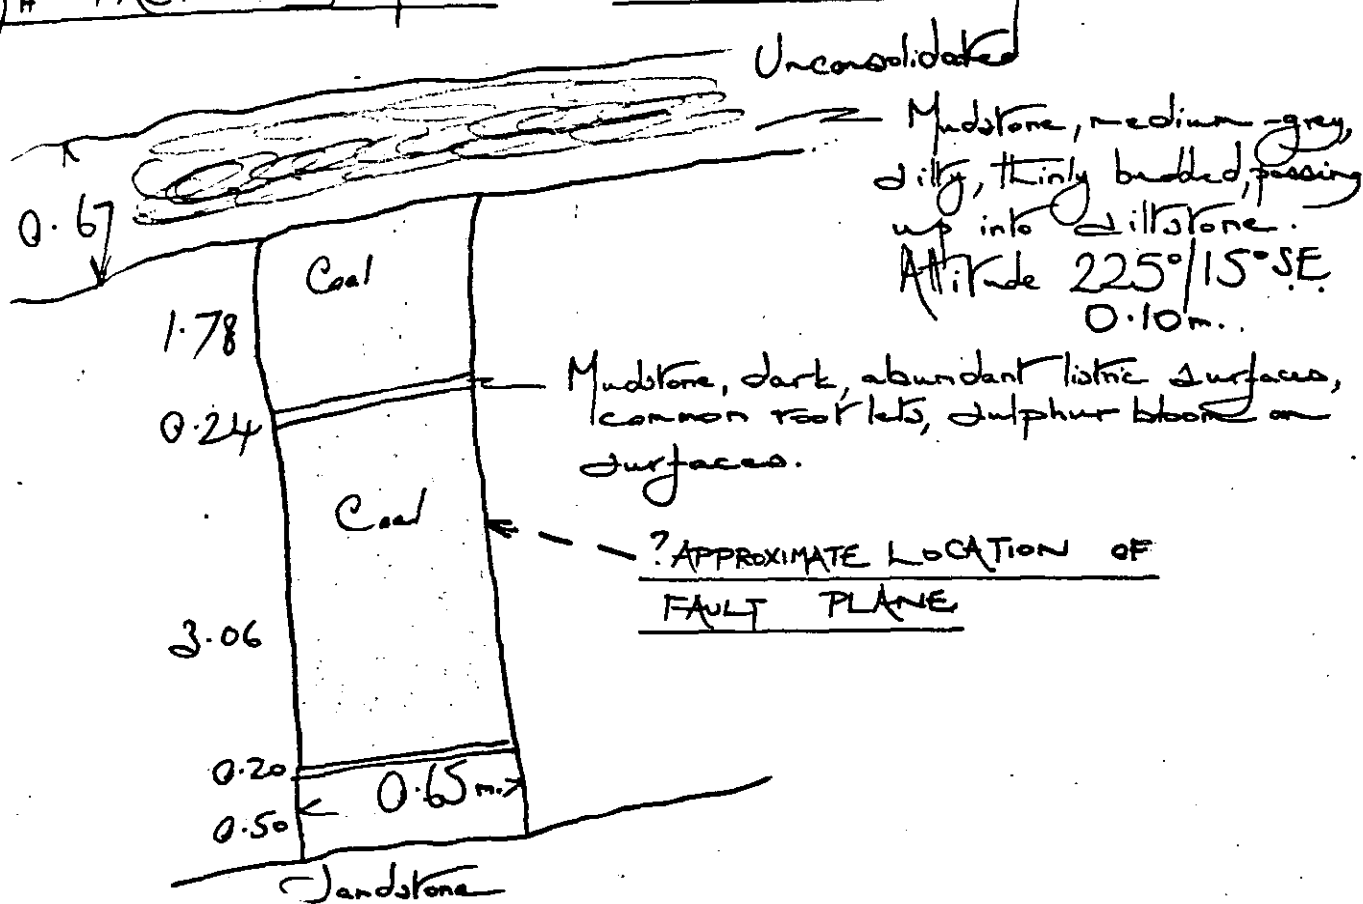 Unconsolidated
Mudstone, medium-grey,
silty, thinly bedded, passing
up into siltstone.
Attitude 225°/15° SE.
0.10m..
0.67
Coal
1.78
Mudstone, dark, abundant listric surfaces,
common rootlets, sulphur bloom on
surfaces.
0.24
Coal
? APPROXIMATE LOCATION OF
FAULT PLANE
3.06
0.20
0.65 m.
0.50
Sandstone